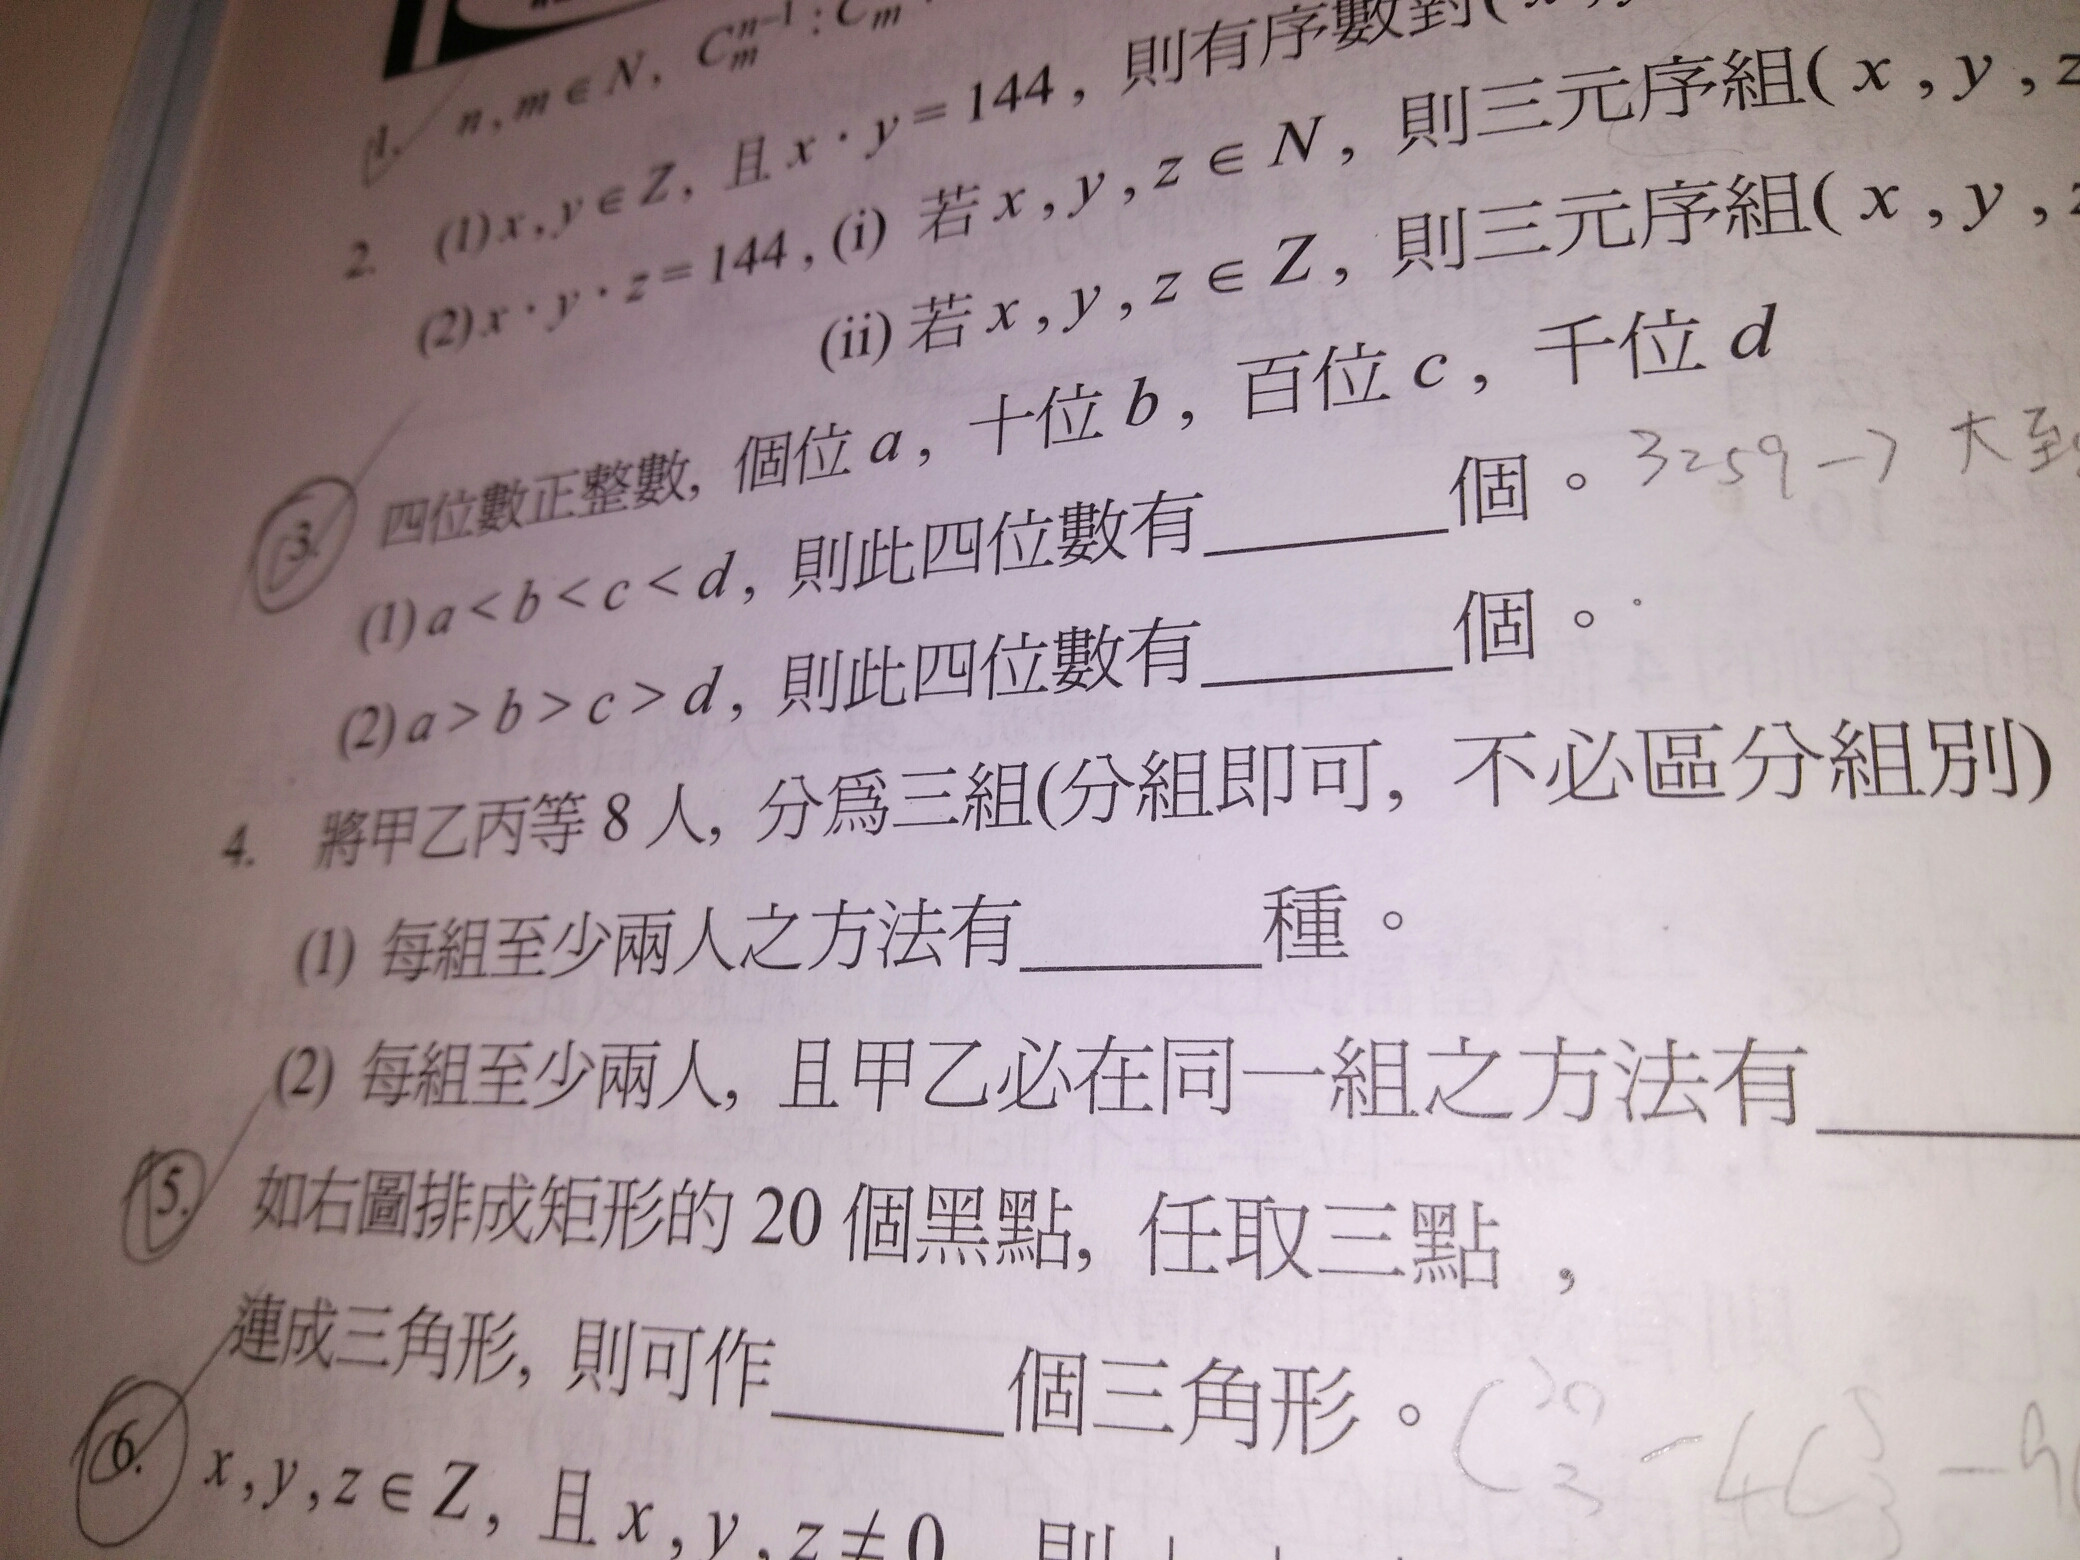 1. n , m ∈ N , C_m^{n-1} : C_m
2. (1) x , y ∈ Z , 且 x · y = 144 , 則有序數對( x , y
(2) x · y · z = 144 , (i) 若 x , y , z ∈ N , 則三元序組( x , y , z
(ii) 若 x , y , z ∈ Z , 則三元序組( x , y , z
3. 四位數正整數, 個位 a , 十位 b , 百位 c , 千位 d
(1) a < b < c < d , 則此四位數有______個。 3259 → 大至
(2) a > b > c > d , 則此四位數有______個。
4. 將甲乙丙等 8 人, 分為三組(分組即可, 不必區分組別)
(1) 每組至少兩人之方法有______種。
(2) 每組至少兩人, 且甲乙必在同一組之方法有______
5. 如右圖排成矩形的 20 個黑點, 任取三點 ,
連成三角形, 則可作______個三角形。 C_3^{20} - 4C_3^5 -
6. x , y , z ∈ Z , 且 x , y , z ≠ 0